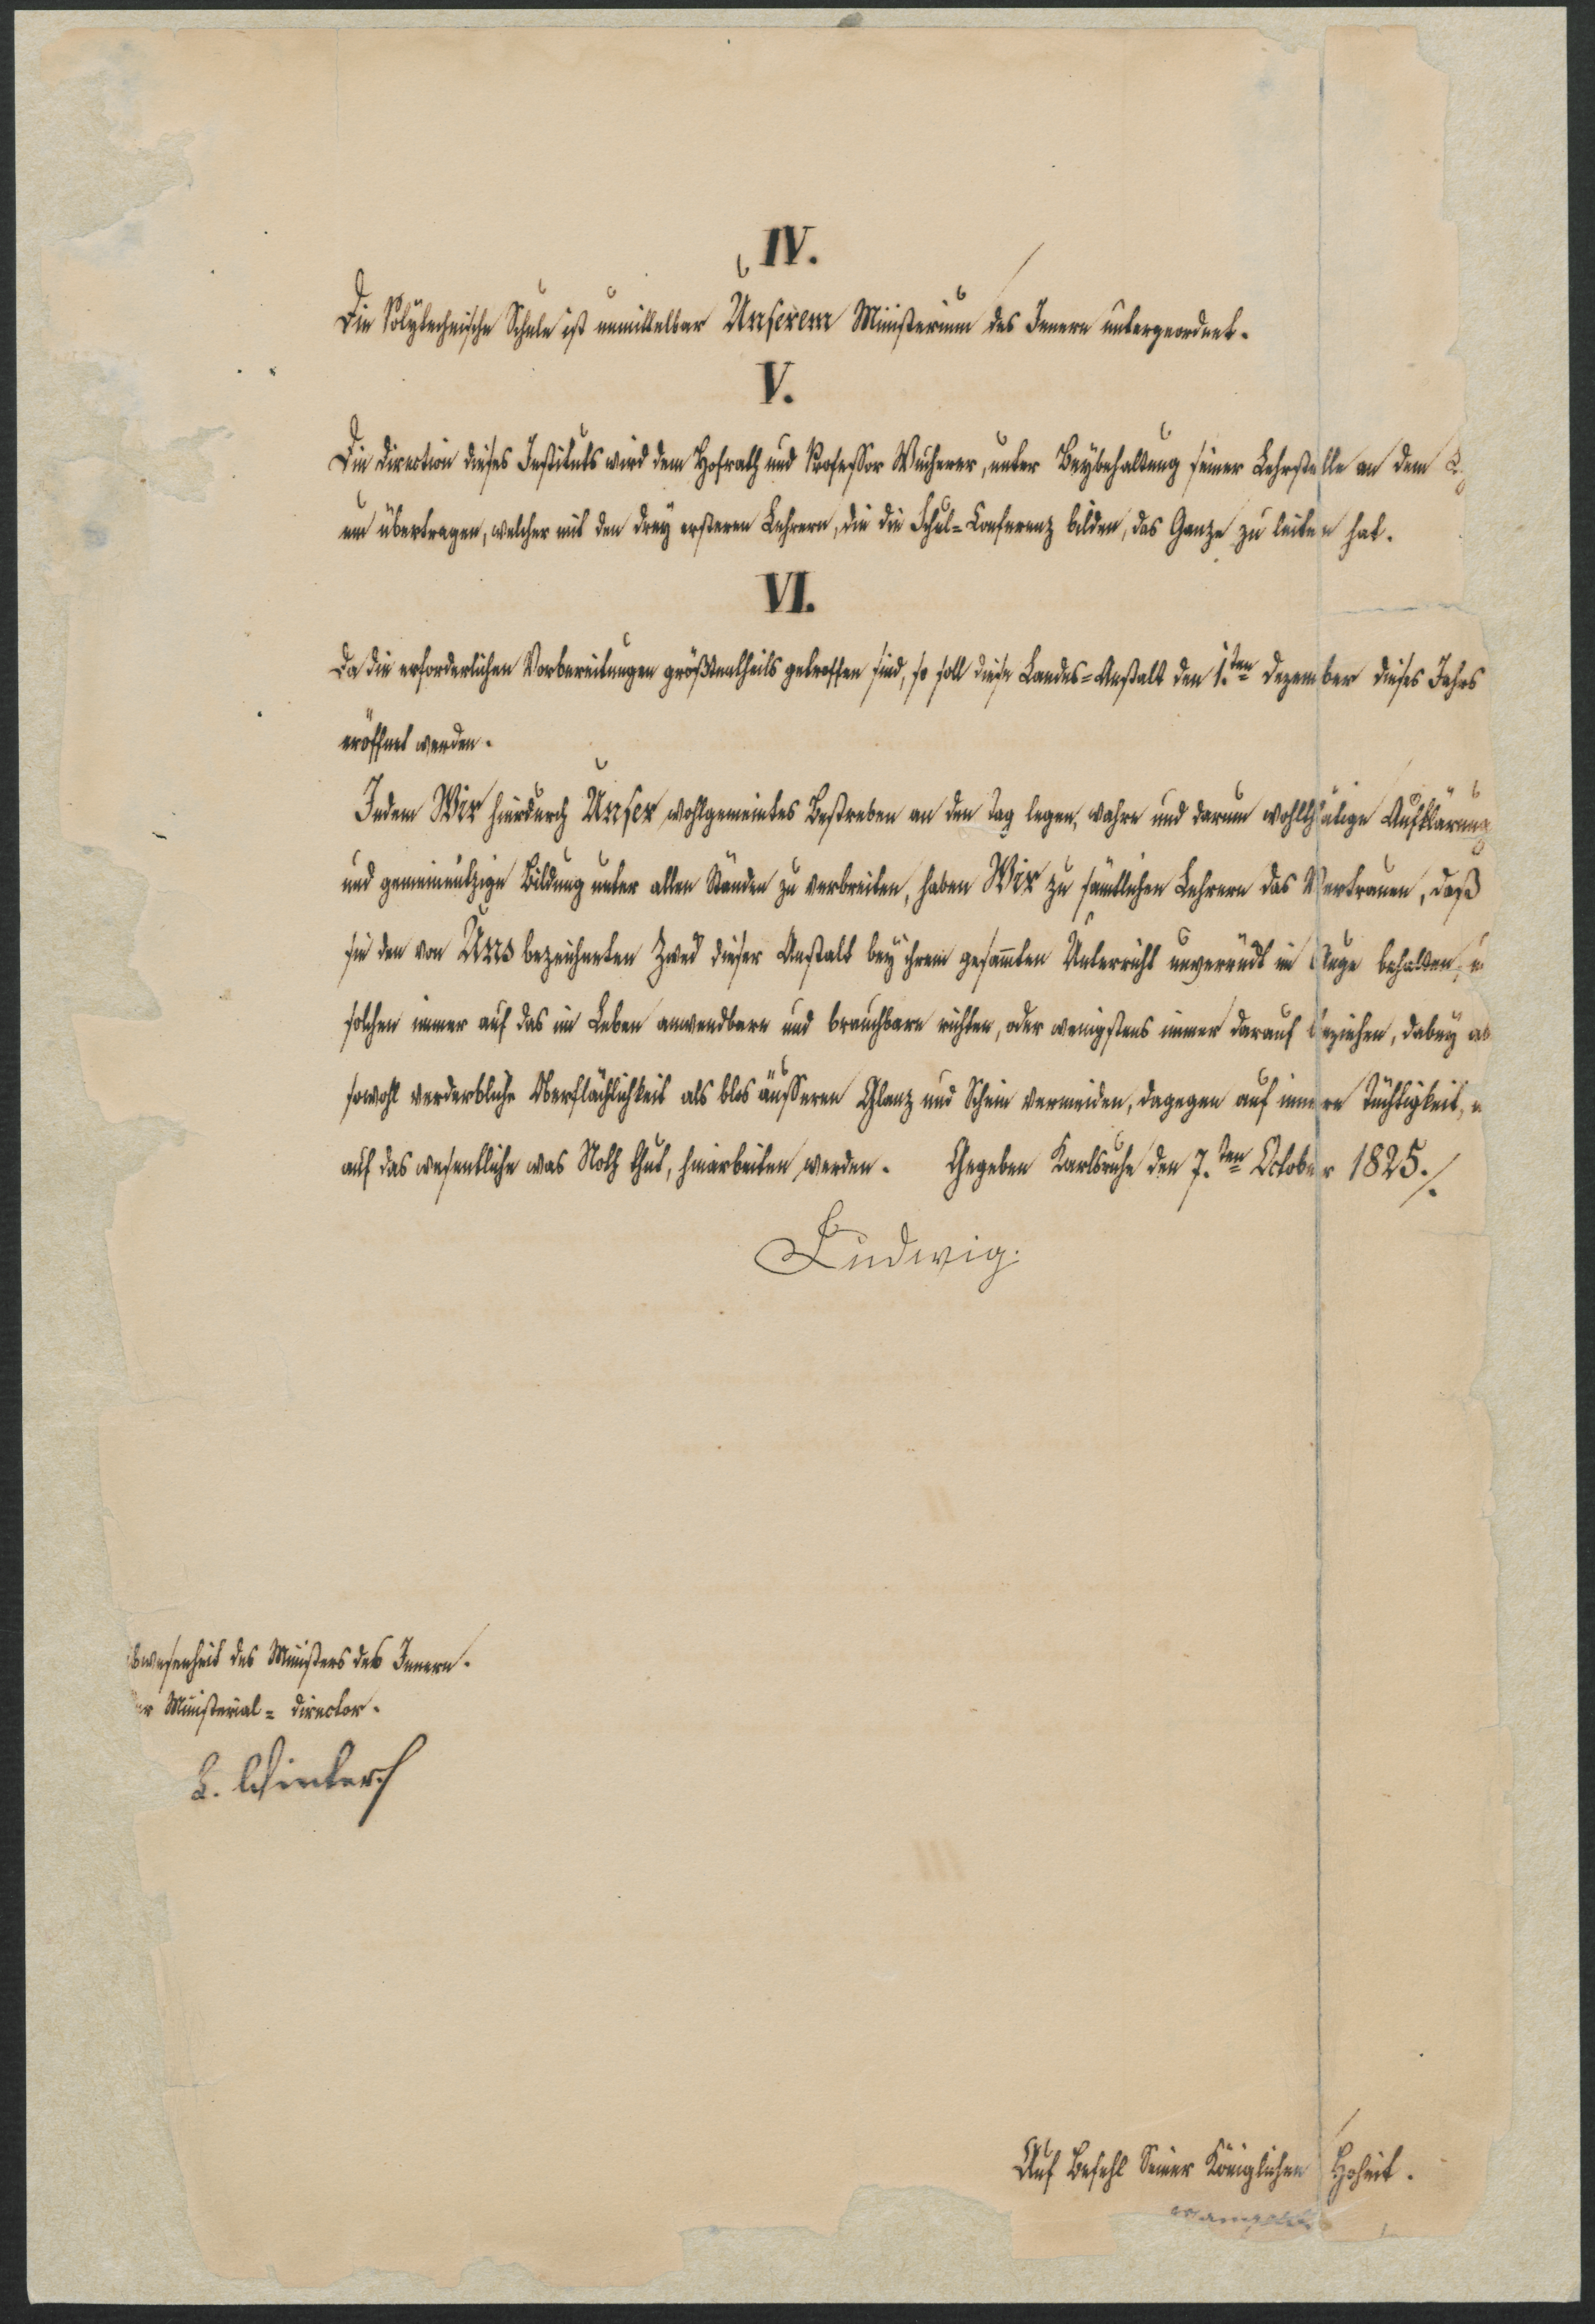 IV.
Die Polytechnische Schule ist unmittelbar Unserem Ministerium des Innern untergeordnet.
V.
Die Direction dieses Instituts wird dem Hofrath und Professor Wucherer, unter Beybehaltung seiner Lehrstelle an dem
um übertragen, welcher mit den drey ersteren Lehrern, die die Schul=Conferenz bilden, das Ganze zu leiten hat.
VI.
Da die erforderlichen Vorbereitungen größtentheils getroffen sind, so soll diese Landes=Anstalt den 1.ten Dezember dieses Jahrs
eröffnet werden.
Indem Wir hierdurch Unser wohlgemeintes Bestreben an den Tag legen, wahre und darum wohlthätige Aufklärung
und gemeinnützige Bildung unter allen Ständen zu verbreiten, haben Wir zu sämtlichen Lehrern das Vertrauen, daß
sie den von Uns bezeichneten Zweck dieser Anstalt bey ihrem gesammten Unterricht unverrückt im Auge behalten,
solchen immer auf das im Leben anwendbare und brauchbare richten, oder wenigstens immer darauf beziehen, dabey
sowohl verderbliche Oberflächlichkeit als blos äusseren Glanz und Schein vermeiden, dagegen auf innere Tüchtigkeit,
auf das wesentliche was Noth thut, hinarbeiten werden. Gegeben Karlsruhe den 7.ten October 1825./.
Ludwig.
bwesenheit des Ministers des Innern.
er Ministerial=Director.
L. Winter
Auf Befehl Seiner Königlichen Hoheit.